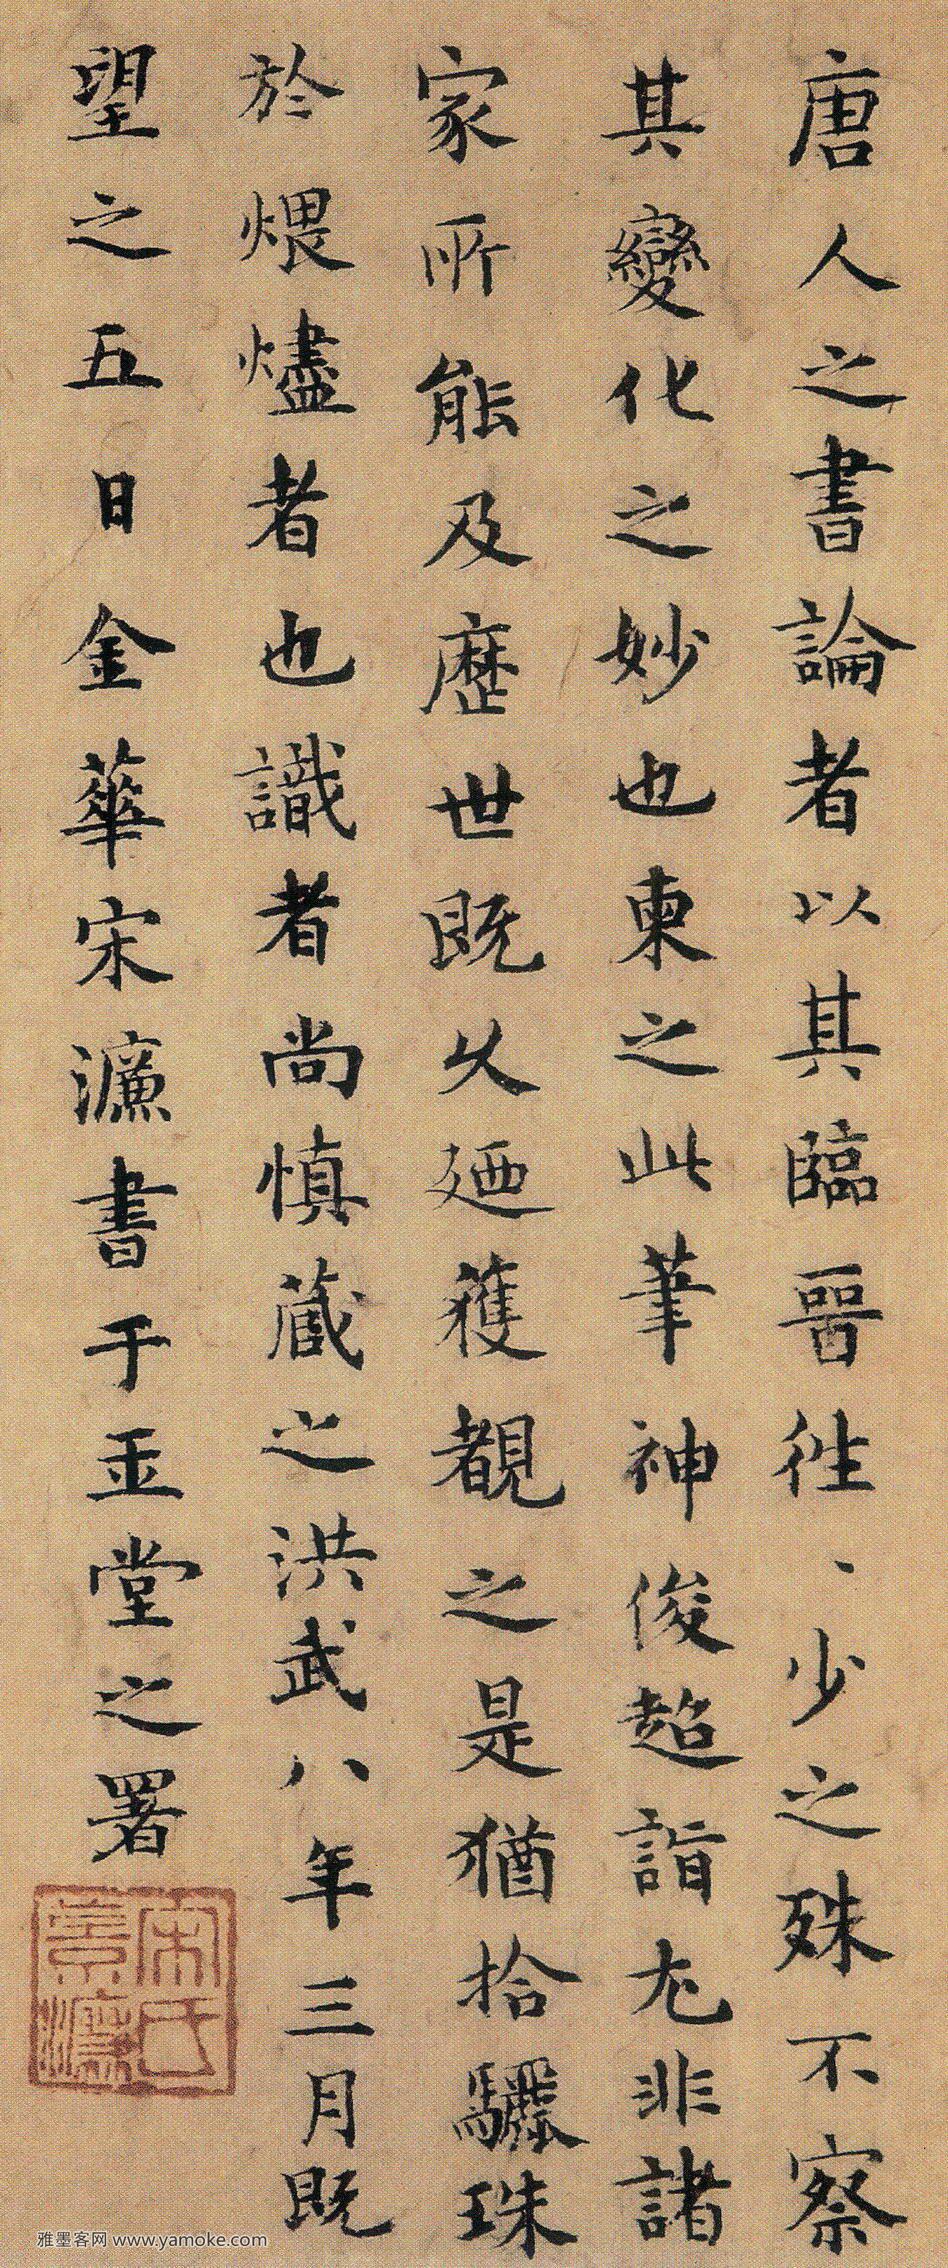 唐人之書論者以其臨晉徃、少之殊不察
其變化之妙也柬之此筆神俊超詣尤非諸
家所能及歷世既久廼獲覩之是猶拾驪珠
於煨燼者也識者尚慎藏之洪武八年三月既
望之五日金華宋濂書于玉堂之署
宋氏景濂
雅墨客网 www.yamoke.com